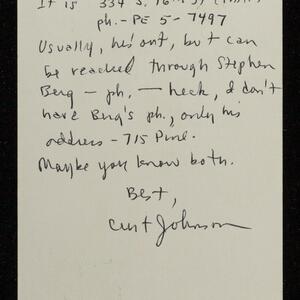 It is 334 S. 16th St
ph. - PE 5 - 7497
Usually, he's out, but can
be reached through Stephen
Berg — ph. — heck, I don't
have Berg's ph., only his
address - 715 Pine.
Maybe you know both.
Best,
Curt Johnson